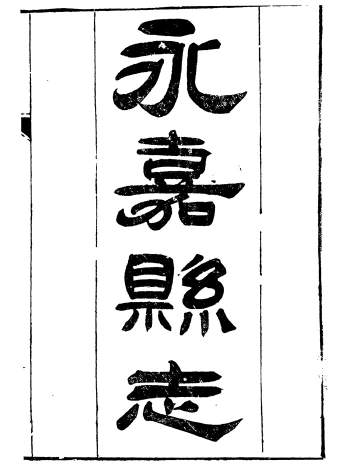 永嘉縣志